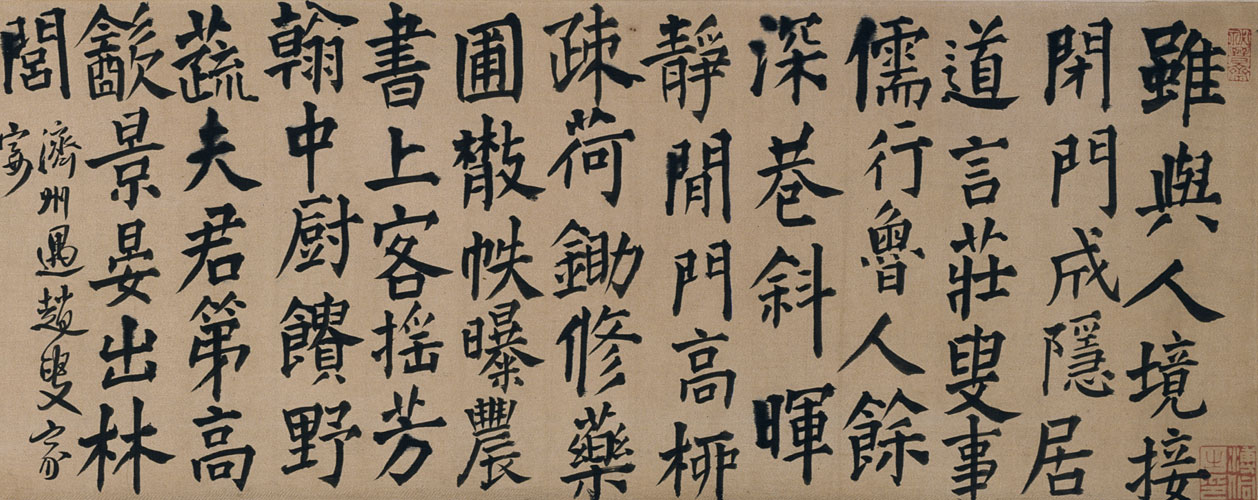 雖與人境接
閉門成隱居
道言莊叟事
儒行魯人餘
深巷斜暉
靜閒門高柳
疎荷鋤修藥
圃散帙曝農
書上客摇芳
翰中厨饋野
蔬夫君第高
㱃景晏出林
閭
濟州過趙叟家
宴